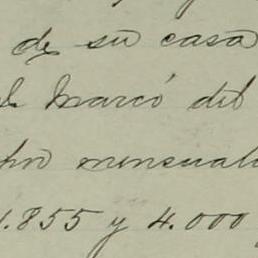 de su casa
Marcó del
mensual
1.855 y 4.000